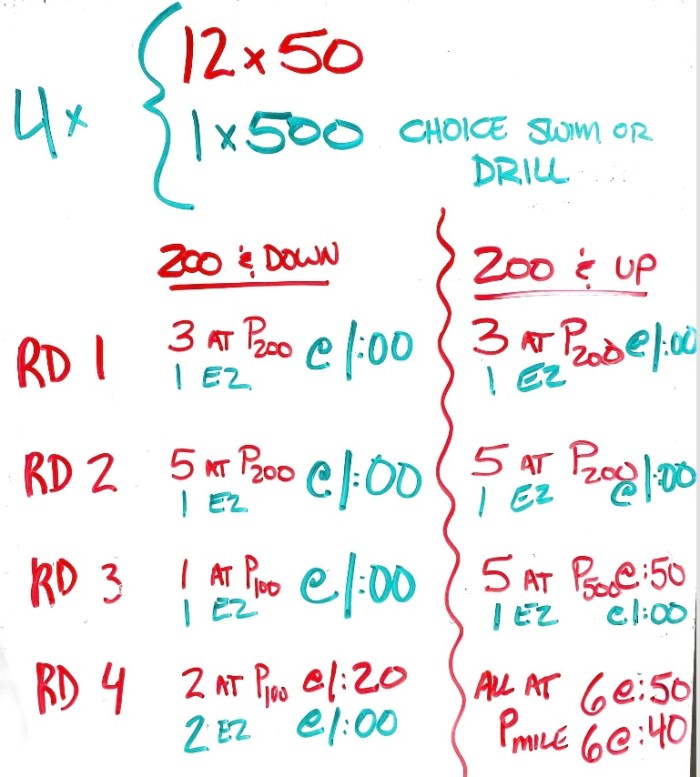 4x
12 x 50
1 x 500 CHOICE SWIM OR
DRILL
200 & DOWN
200 & UP
RD 1
3 AT P200 @ 1:00
1 EZ
3 AT P200 @ 1:00
1 EZ
RD 2
5 AT P200 @ 1:00
1 EZ
5 AT P200
1 EZ @ 1:00
RD 3
1 AT P100 @ 1:00
1 EZ
5 AT P500 @ :50
1 EZ @ 1:00
RD 4
2 AT P100 @ 1:20
2 EZ @ 1:00
ALL AT 6 @ :50
PMILE 6 @ :40